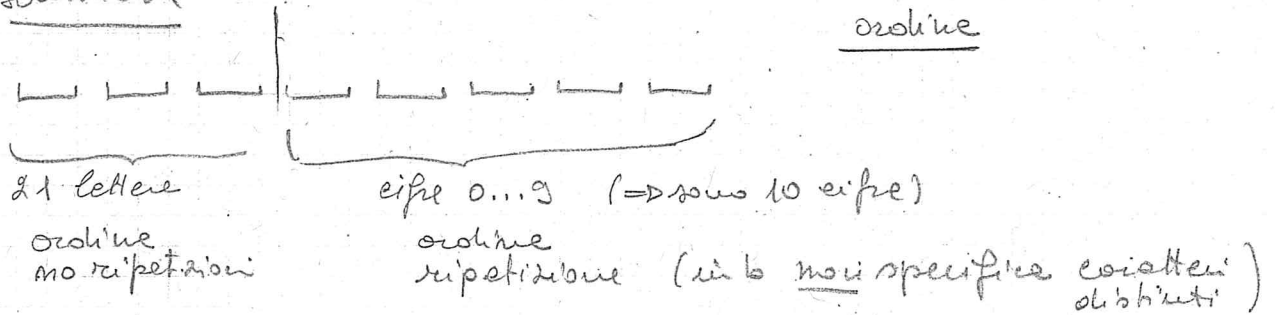 ordine
21 lettere cifre 0...9 (⇒ sono 10 cifre)
ordine ordine
no ripetizioni ripetizione (in b non specifica caratteri
distinti)